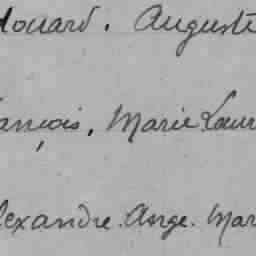 douard. Auguste
ançois, Marie Laur
lexandre. Ange. Mar